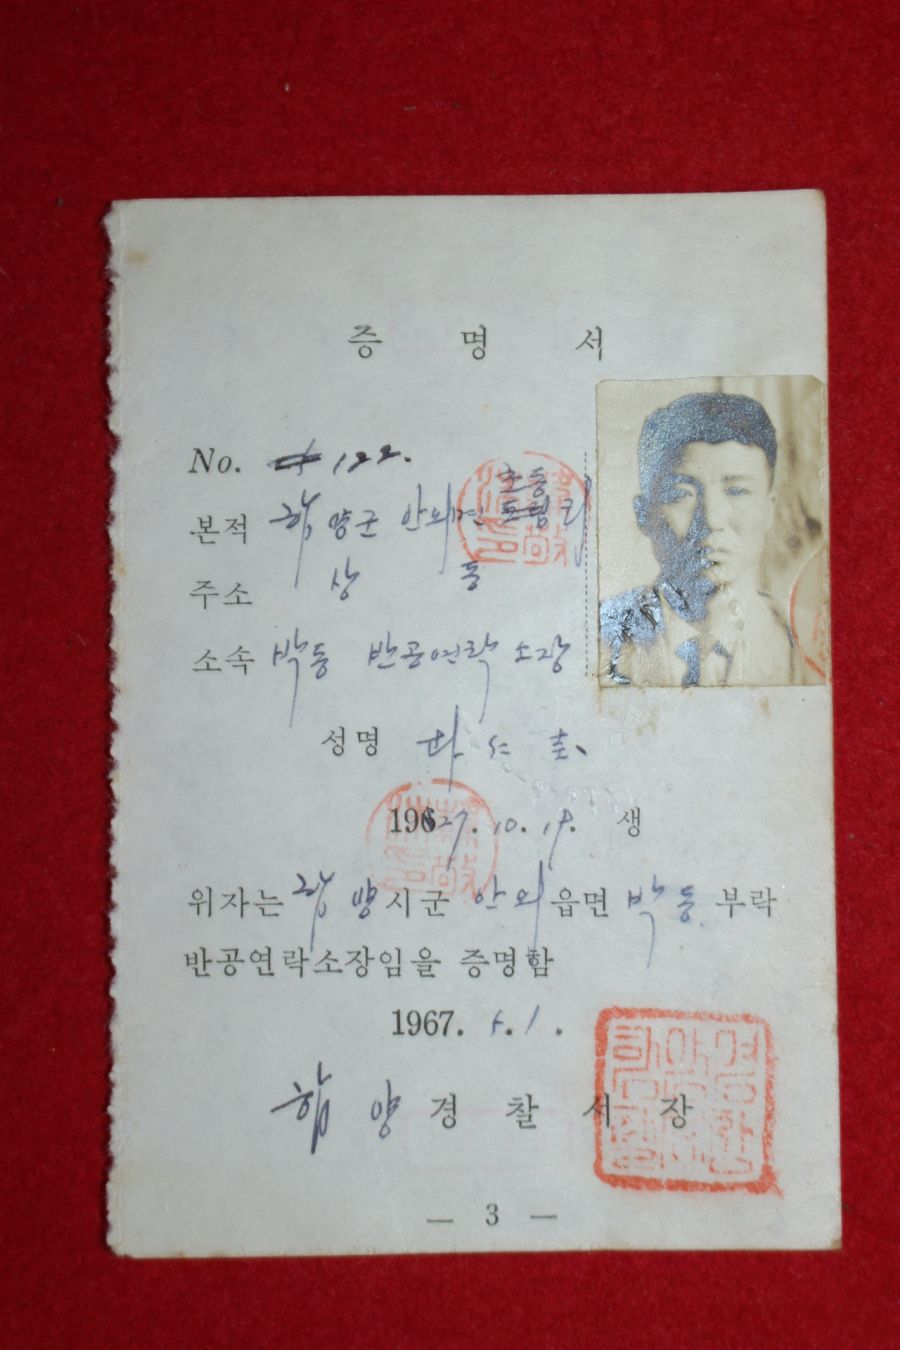 증 명 서
No. 122.
본적 함양군 안의면 초동리
주소 상 동
소속 박동 반공연락 소장
성명
1927. 10. 19. 생
위자는 함양시군 안의읍면 박동 부락
반공연락소장임을 증명함
1967. 1.
함양경찰서장
— 3 —